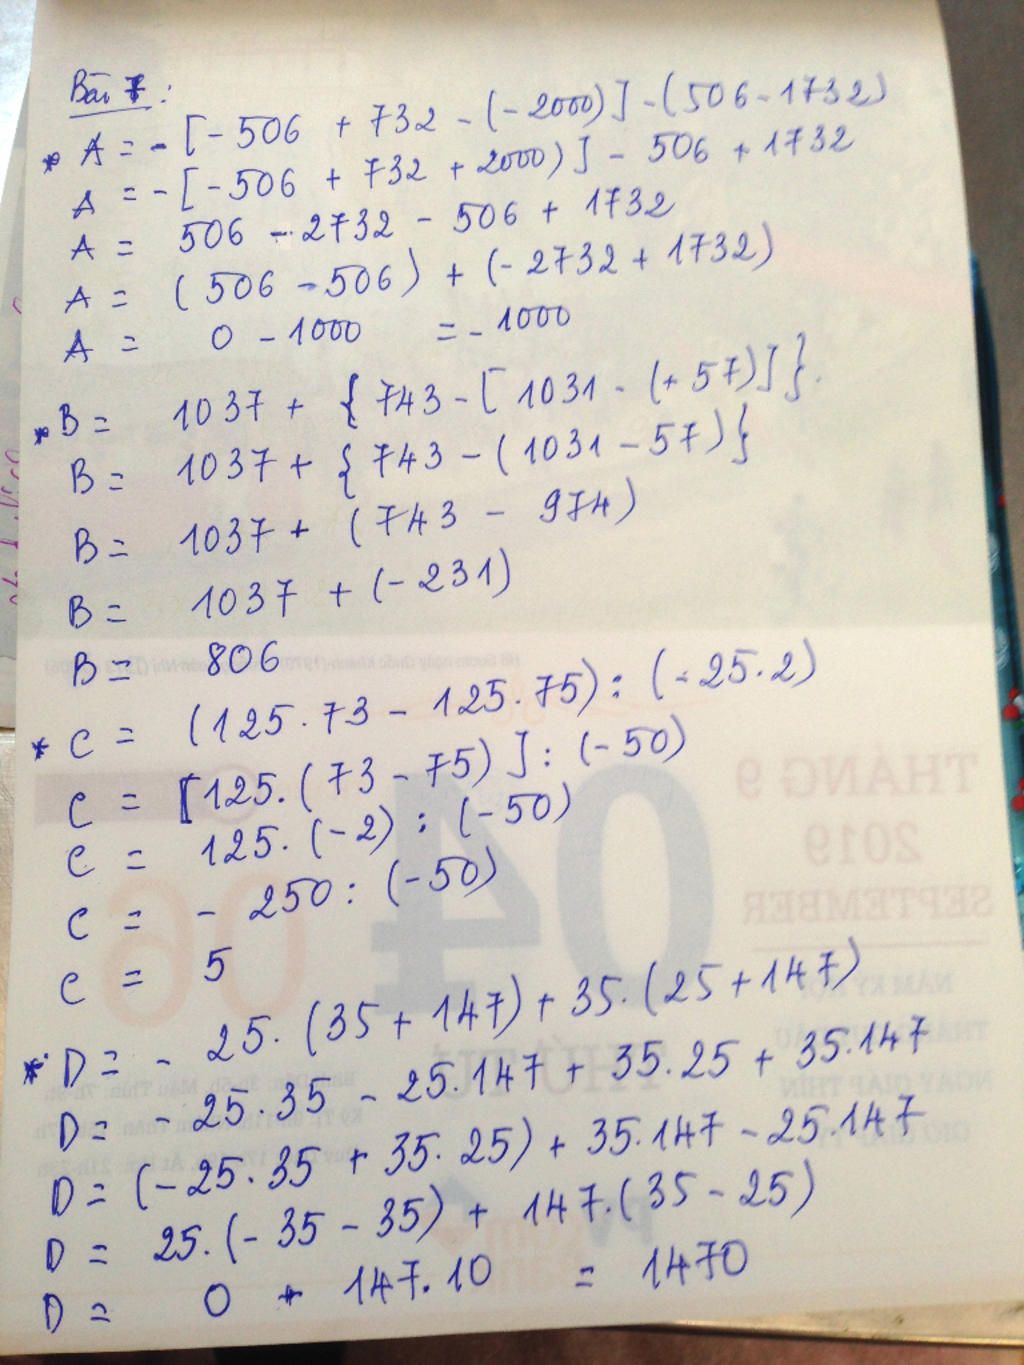 Bài 7:
* A = - [- 506 + 732 - (- 2000)] - (506 - 1732)
A = - [- 506 + 732 + 2000)] - 506 + 1732
A = 506 - 2732 - 506 + 1732
A = (506 - 506) + (- 2732 + 1732)
A = 0 - 1000 = - 1000
* B = 1037 + {743 - [1031 - (+ 57)]}.
B = 1037 + {743 - (1031 - 57)}
B = 1037 + (743 - 974)
B = 1037 + (- 231)
B = 806
* C = (125.73 - 125.75) : (- 25.2)
C = [125.(73 - 75)] : (- 50)
C = 125.(- 2) : (- 50)
C = - 250 : (- 50)
C = 5
* D = - 25.(35 + 147) + 35.(25 + 147)
D = - 25.35 - 25.147 + 35.25 + 35.147
D = (- 25.35 + 35.25) + 35.147 - 25.147
D = 25.(- 35 - 35) + 147.(35 - 25)
D = 0 + 147.10 = 1470
THÁNG 9
04
2019
06
SEPTEMBER
THỨ TƯ